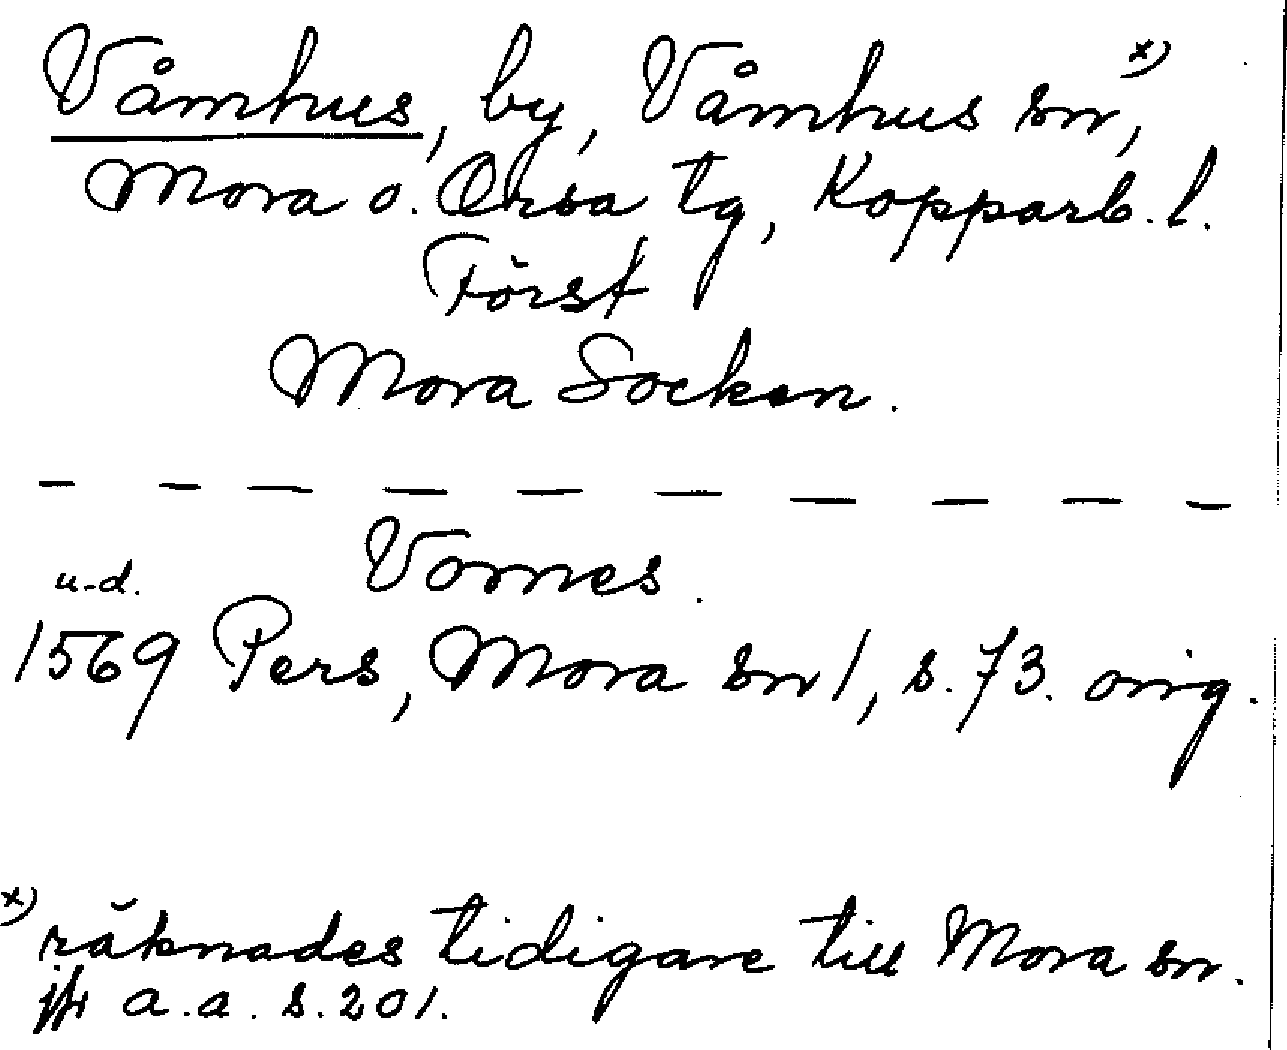 Våmhus, by, Våmhus sn, x)
Mora o. Orsa tg, Kopparb. l.
Först
Mora Socken.
Vomes.
u-d.
1569 Pers, Mora sn 1, s. 73. orig.
x) räknades tidigare till Mora sn.
jfr a.a. s. 201.